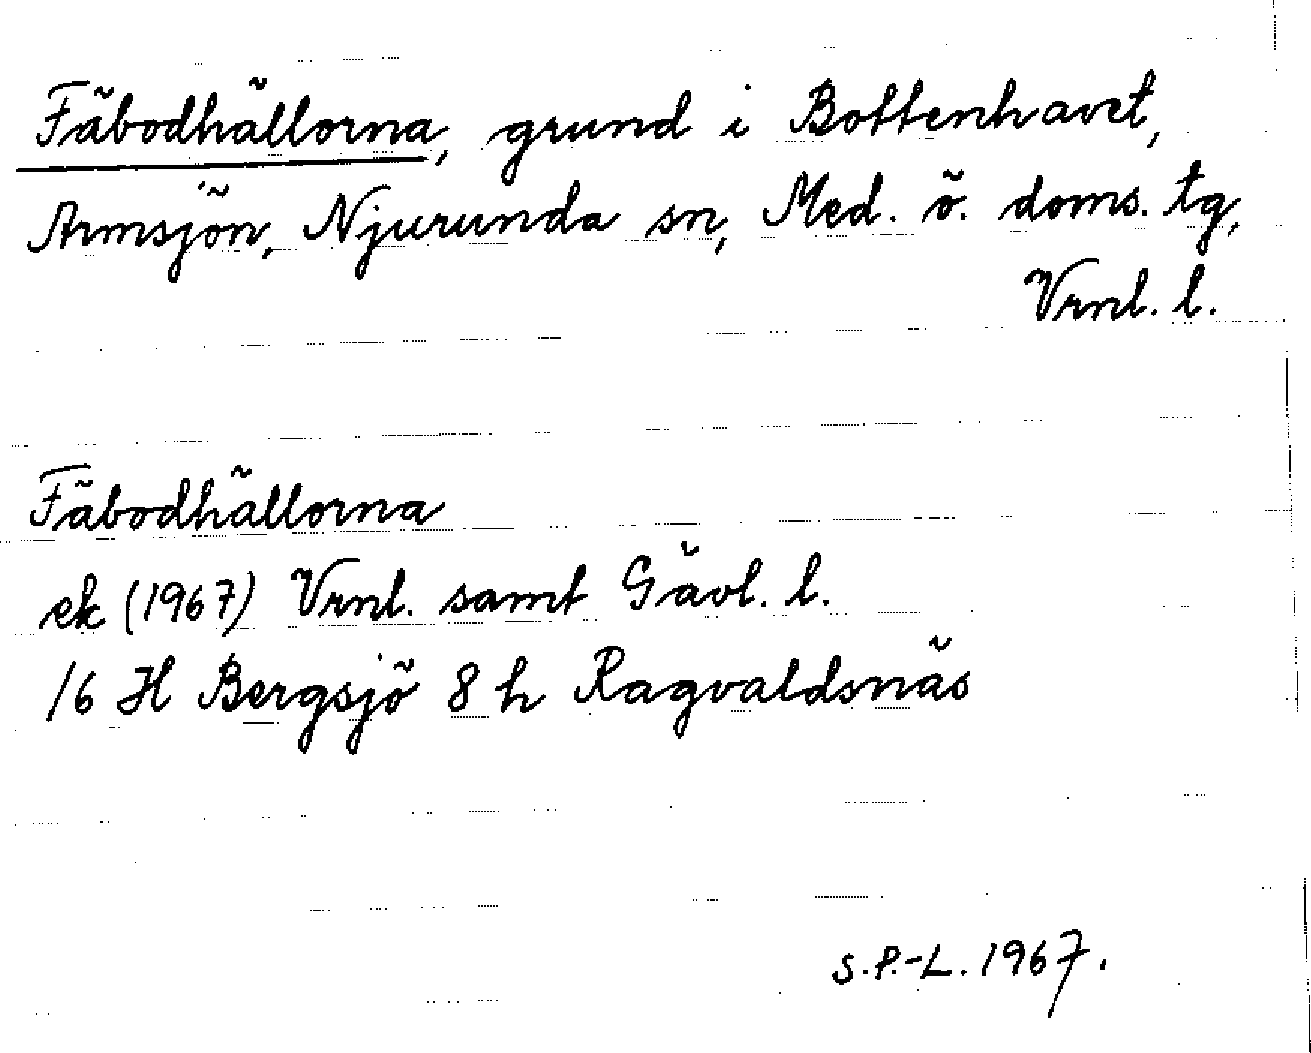 Fäbodhällorna, grund i Bottenhavet,
Armsjön, Njurunda sn, Med. ö. doms. tg,
Vrnl. l.
Fäbodhällorna
ek (1967) Vrnl. samt Gävl. l.
16 H Bergsjö 8 h Ragvaldsnäs
S.P.-L. 1967.